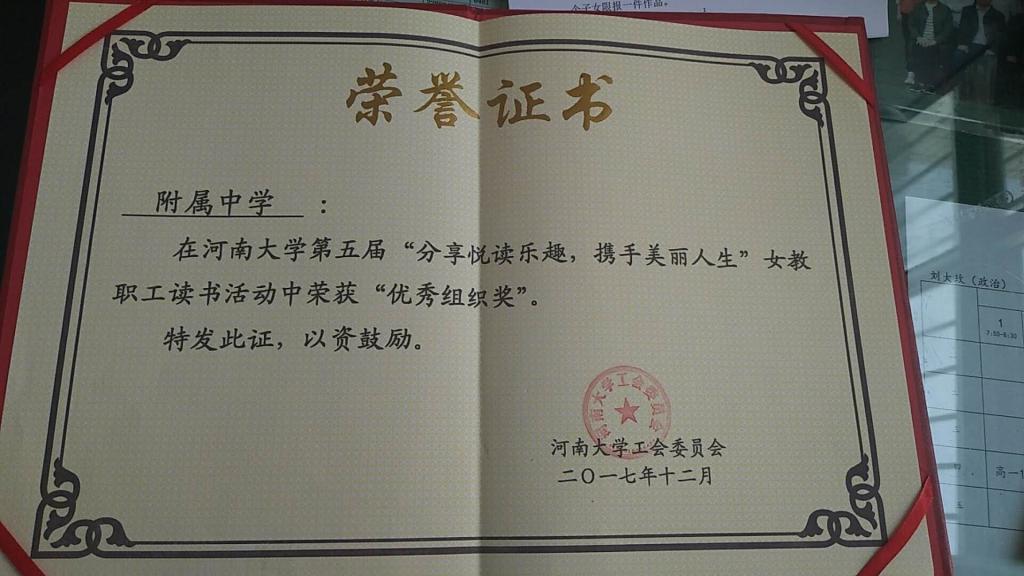 个子女限报一件作品。
荣誉证书
附属中学：
在河南大学第五届“分享悦读乐趣，携手美丽人生”女教
职工读书活动中荣获“优秀组织奖”。
特发此证，以资鼓励。
河南大学工会委员会
河南大学工会委员会
二〇一七年十二月
(政治)
1
7:50-8:30
二
三
四
高一
五